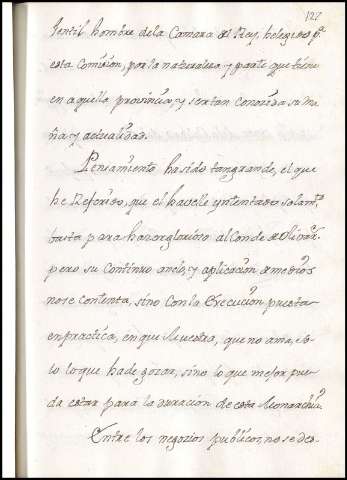 127
Jentil hombre de la Camara del Rey, helegido pª
esta Comision, por la naturaleza y parte que tiene
en aquella provincia, y ser tan conocida su ma
ña y actualidad.
Pensamiento ha sido tan grande, el que
he Referido, que el havelle yntentado solamte
basta para hazer glorioso al Conde de Olivars.
pero su continuo ancio, y aplicacion de medios
no se contenta, sino Con la Execucion puesta
en practica, en que Muestra, que no ama, so
lo lo que ha de gozar, sino lo que mejor pue
da estar para la duracion de esta Monarchia.
Entre los negocios publicos, no se des-